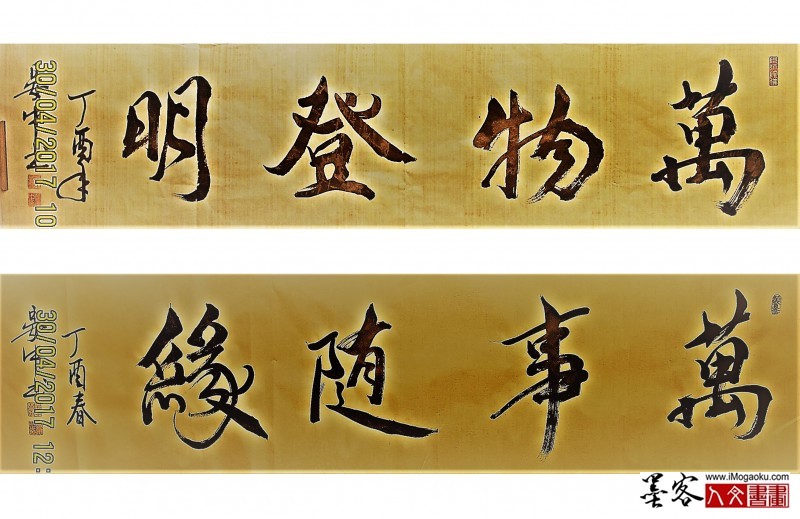 萬物登明
丁酉年
30/04/2017 10
萬事随緣
丁酉春
30/04/2017 12:
墨客
www.iMogaoku.com
人文書畫